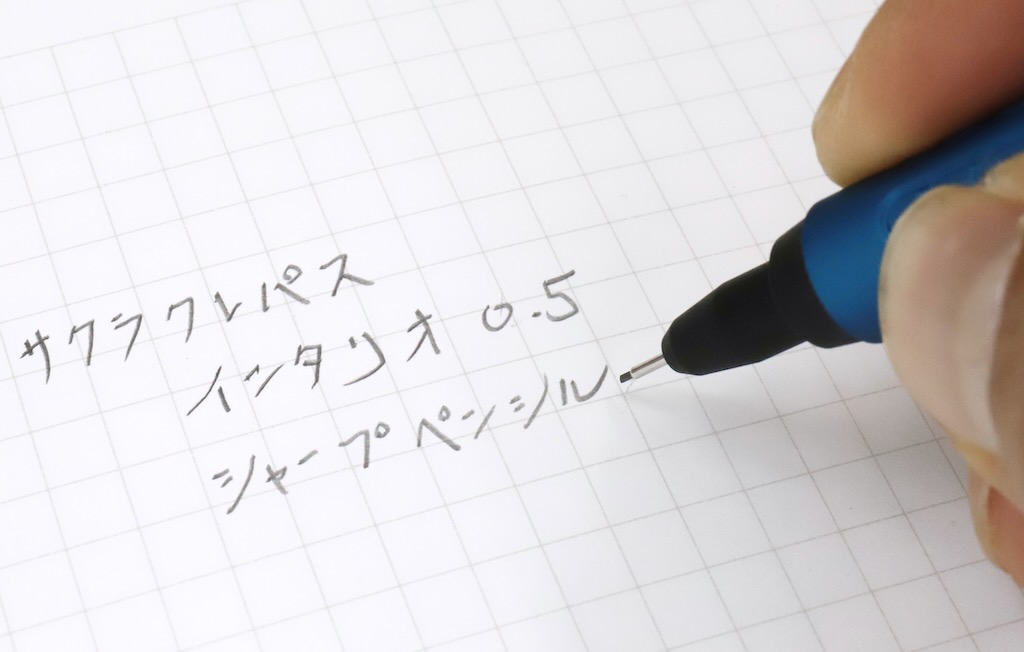 サクラクレパス
インタリオ 0.5
シャープペンシル